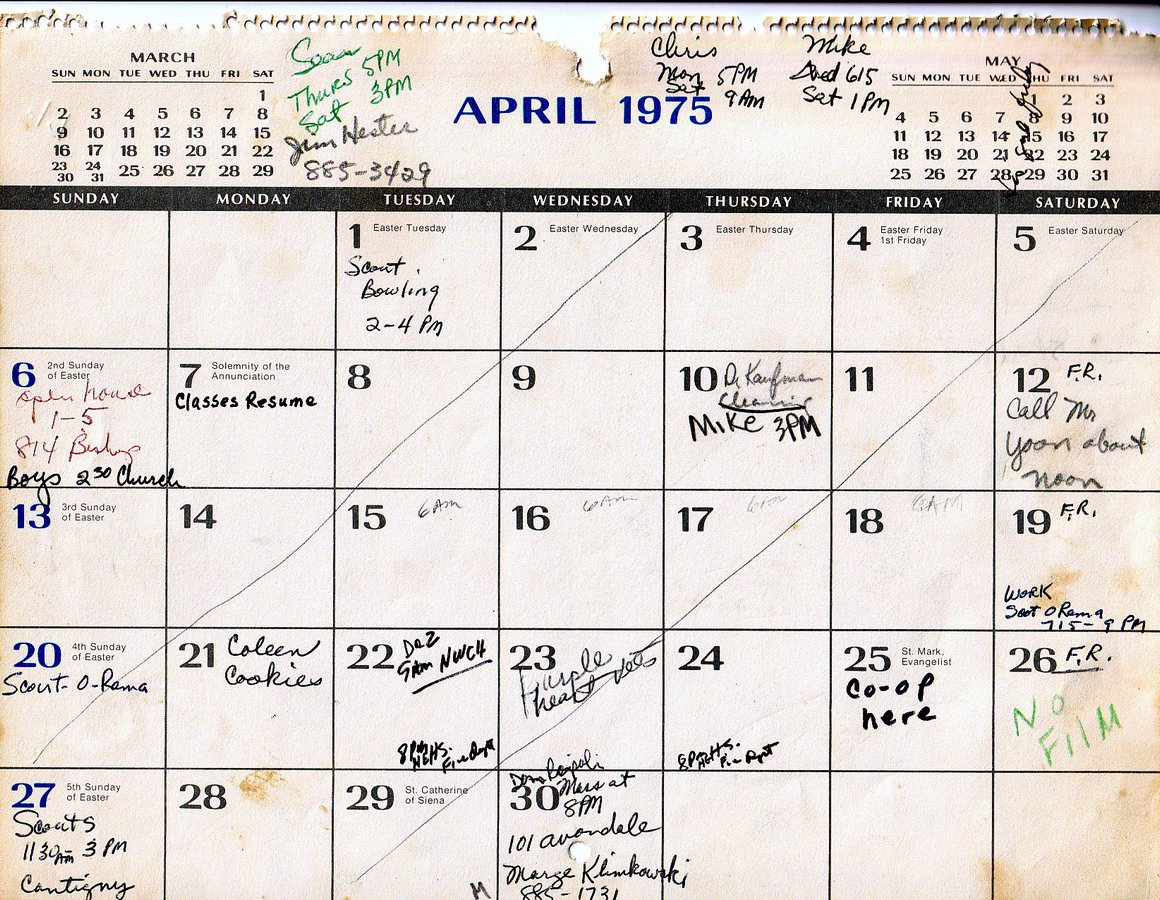 MARCH
SUN MON TUE WED THU FRI SAT
1
2 3 4 5 6 7 8
9 10 11 12 13 14 15
16 17 18 19 20 21 22
23 24 25 26 27 28 29
30 31
Thurs 5PM
Sat 3PM
Jim Hester
885-3429
APRIL 1975
Chris
Mon 5PM
Sat 9AM
Mike
Wed 615
Sat 1PM
MAY
SUN MON TUE WED THU FRI SAT
2 3
4 5 6 7 9 10
11 12 13 14 15 16 17
18 19 20 21 22 23 24
25 26 27 28 29 30 31
SUNDAY MONDAY TUESDAY WEDNESDAY THURSDAY FRIDAY SATURDAY
1 Easter Tuesday
Scout
Bowling
2-4 PM
2 Easter Wednesday
3 Easter Thursday
4 Easter Friday
1st Friday
5 Easter Saturday
6 2nd Sunday
of Easter
open house
1-5
814
Boys 2 30 Church
7 Solemnity of the
Annunciation
Classes Resume
8
9
10 Dr Kaufman
Cleaning
Mike 3PM
11
12 F.R.
Call Mr
Yoon about
noon
13 3rd Sunday
of Easter
14
15 6AM
16 6AM
17 6AM
18 6AM
19 F.R.
WORK
Scot O Rama
715-9 PM
20 4th Sunday
of Easter
Scout-O-Rama
21 Coleen
Cookies
22
9AM NWCH
8PM
Fire Dept
23 Purple
heart Vets
24
8PM
Fire Dept
25 St. Mark,
Evangelist
CO-OP
here
26 F.R.
NO
FILM
27 5th Sunday
of Easter
Scouts
1130AM-3PM
Cantigny
28
29 St. Catherine
of Siena
M
30 Mass at
8PM
101 avondale
Marge Klimkowski
885-1731